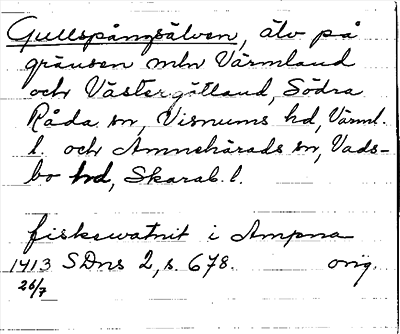 Gullspångsälven, älv på
gränsen mln Värmland
och Västergötland, Södra
Råda sn, Visnums hd, Värml.
l. och Amnehärads sn, Vads-
bo hd, Skarab. l.
fiskewatnit i Ampna
1413 SDns 2, s. 678. orig.
26/7